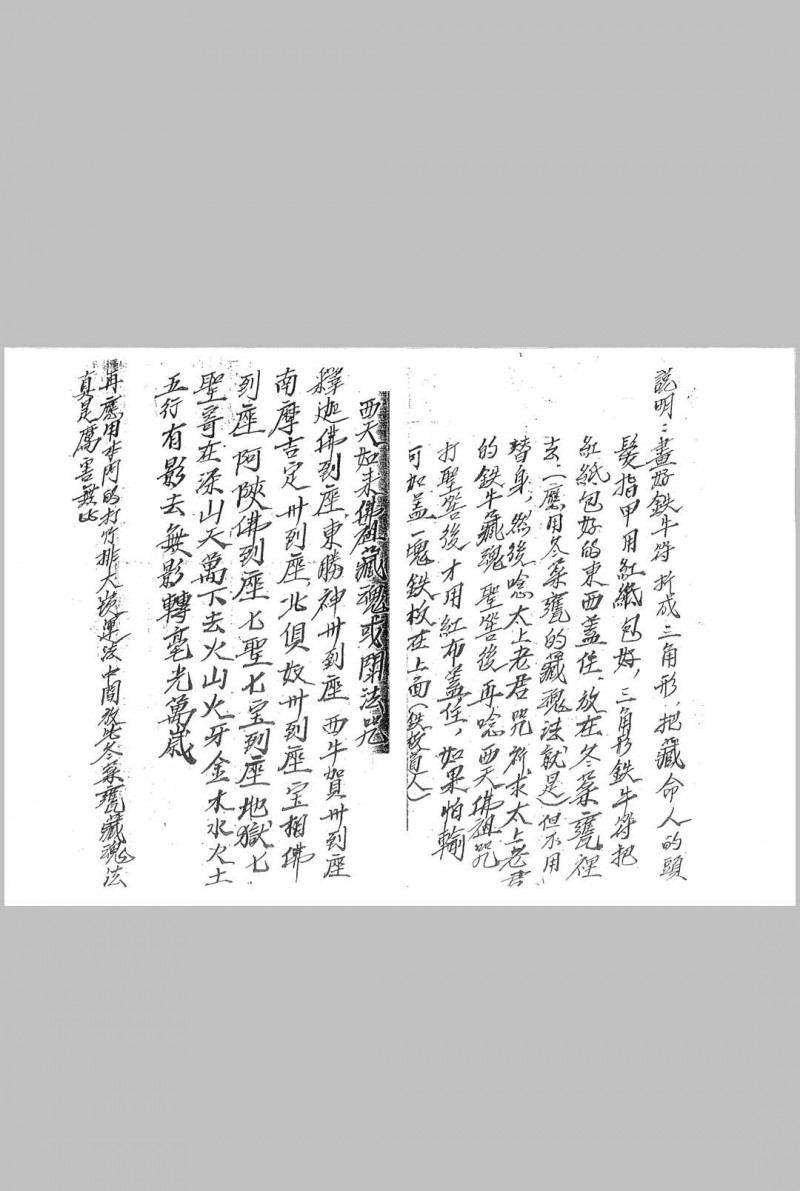 說明：畫好鉄牛符折成三角形，把藏命人的頭
髮指甲用紅紙包好，三角形鉄牛符把
紅紙包好的東西蓋住、放在冬菜甕裡
去，（應用冬菜甕的藏魂法就是）但不用
替身，然後唸太上老君咒祈求太上老君
的鉄牛藏魂聖筶後再唸西天佛祖咒
打聖筶後才用紅布蓋住，如果怕輸
可加蓋一塊鉄板在上面（鉄板道人）
西天如來佛祖藏魂或閉法咒
釋迦佛到座東勝神卅到座西牛賀卅到座
南摩吉定卅到座北俱奴卅到座宝相佛
到座阿陝佛到座七聖七宝到座地獄七
聖哥在深山天萬下去火山火牙金木水火土
五行有影去無影轉毫光萬歲
再應用本門的打竹排大法中間放此冬菜甕藏魂法
真是厲害無比